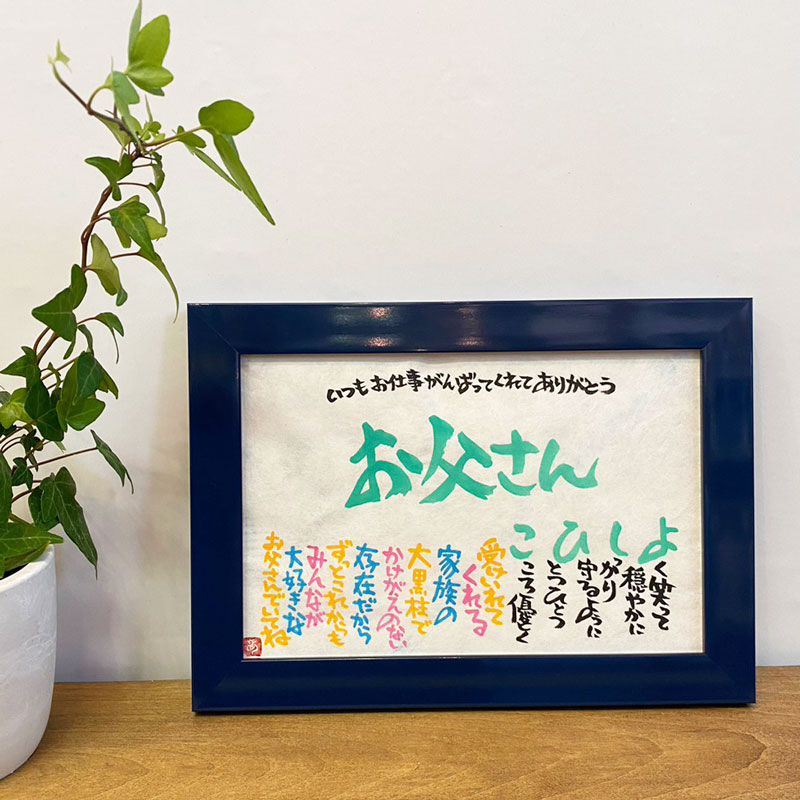 いつもお仕事がんばってくれてありがとう
お父さん
よく笑って
穏やかに
しっかり
守るように
ひとつひとつ
こころ優しく
受けいれて
くれる
家族の
大黒柱で
かけがえのない
存在だから
ずっとこれからも
みんなが
大好きな
お父さんでいてね
あ